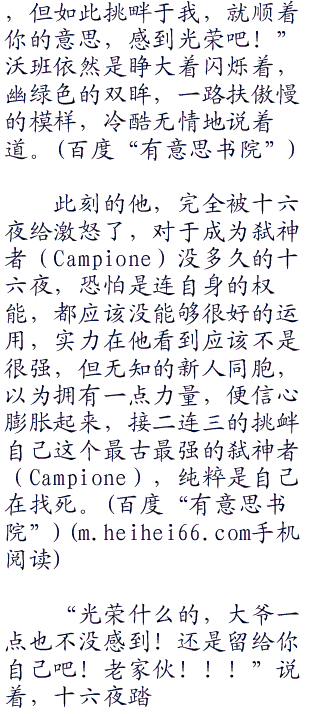 ，但如此挑畔于我，就顺着
你的意思，感到光荣吧！”
沃班依然是睁大着闪烁着，
幽绿色的双眸，一路扶傲慢
的模样，冷酷无情地说着
道。(百度“有意思书院”)
此刻的他，完全被十六
夜给激怒了，对于成为弑神
者（Campione）没多久的十
六夜，恐怕是连自身的权
能，都应该没能够很好的运
用，实力在他看到应该不是
很强，但无知的新人同胞，
以为拥有一点力量，便信心
膨胀起来，接二连三的挑衅
自己这个最古最强的弑神者
（Campione），纯粹是自己
在找死。(百度“有意思书
院”)(m.heihei66.com手机
阅读)
“光荣什么的，大爷一
点也不没感到！还是留给你
自己吧！老家伙！！！”说
着，十六夜踏